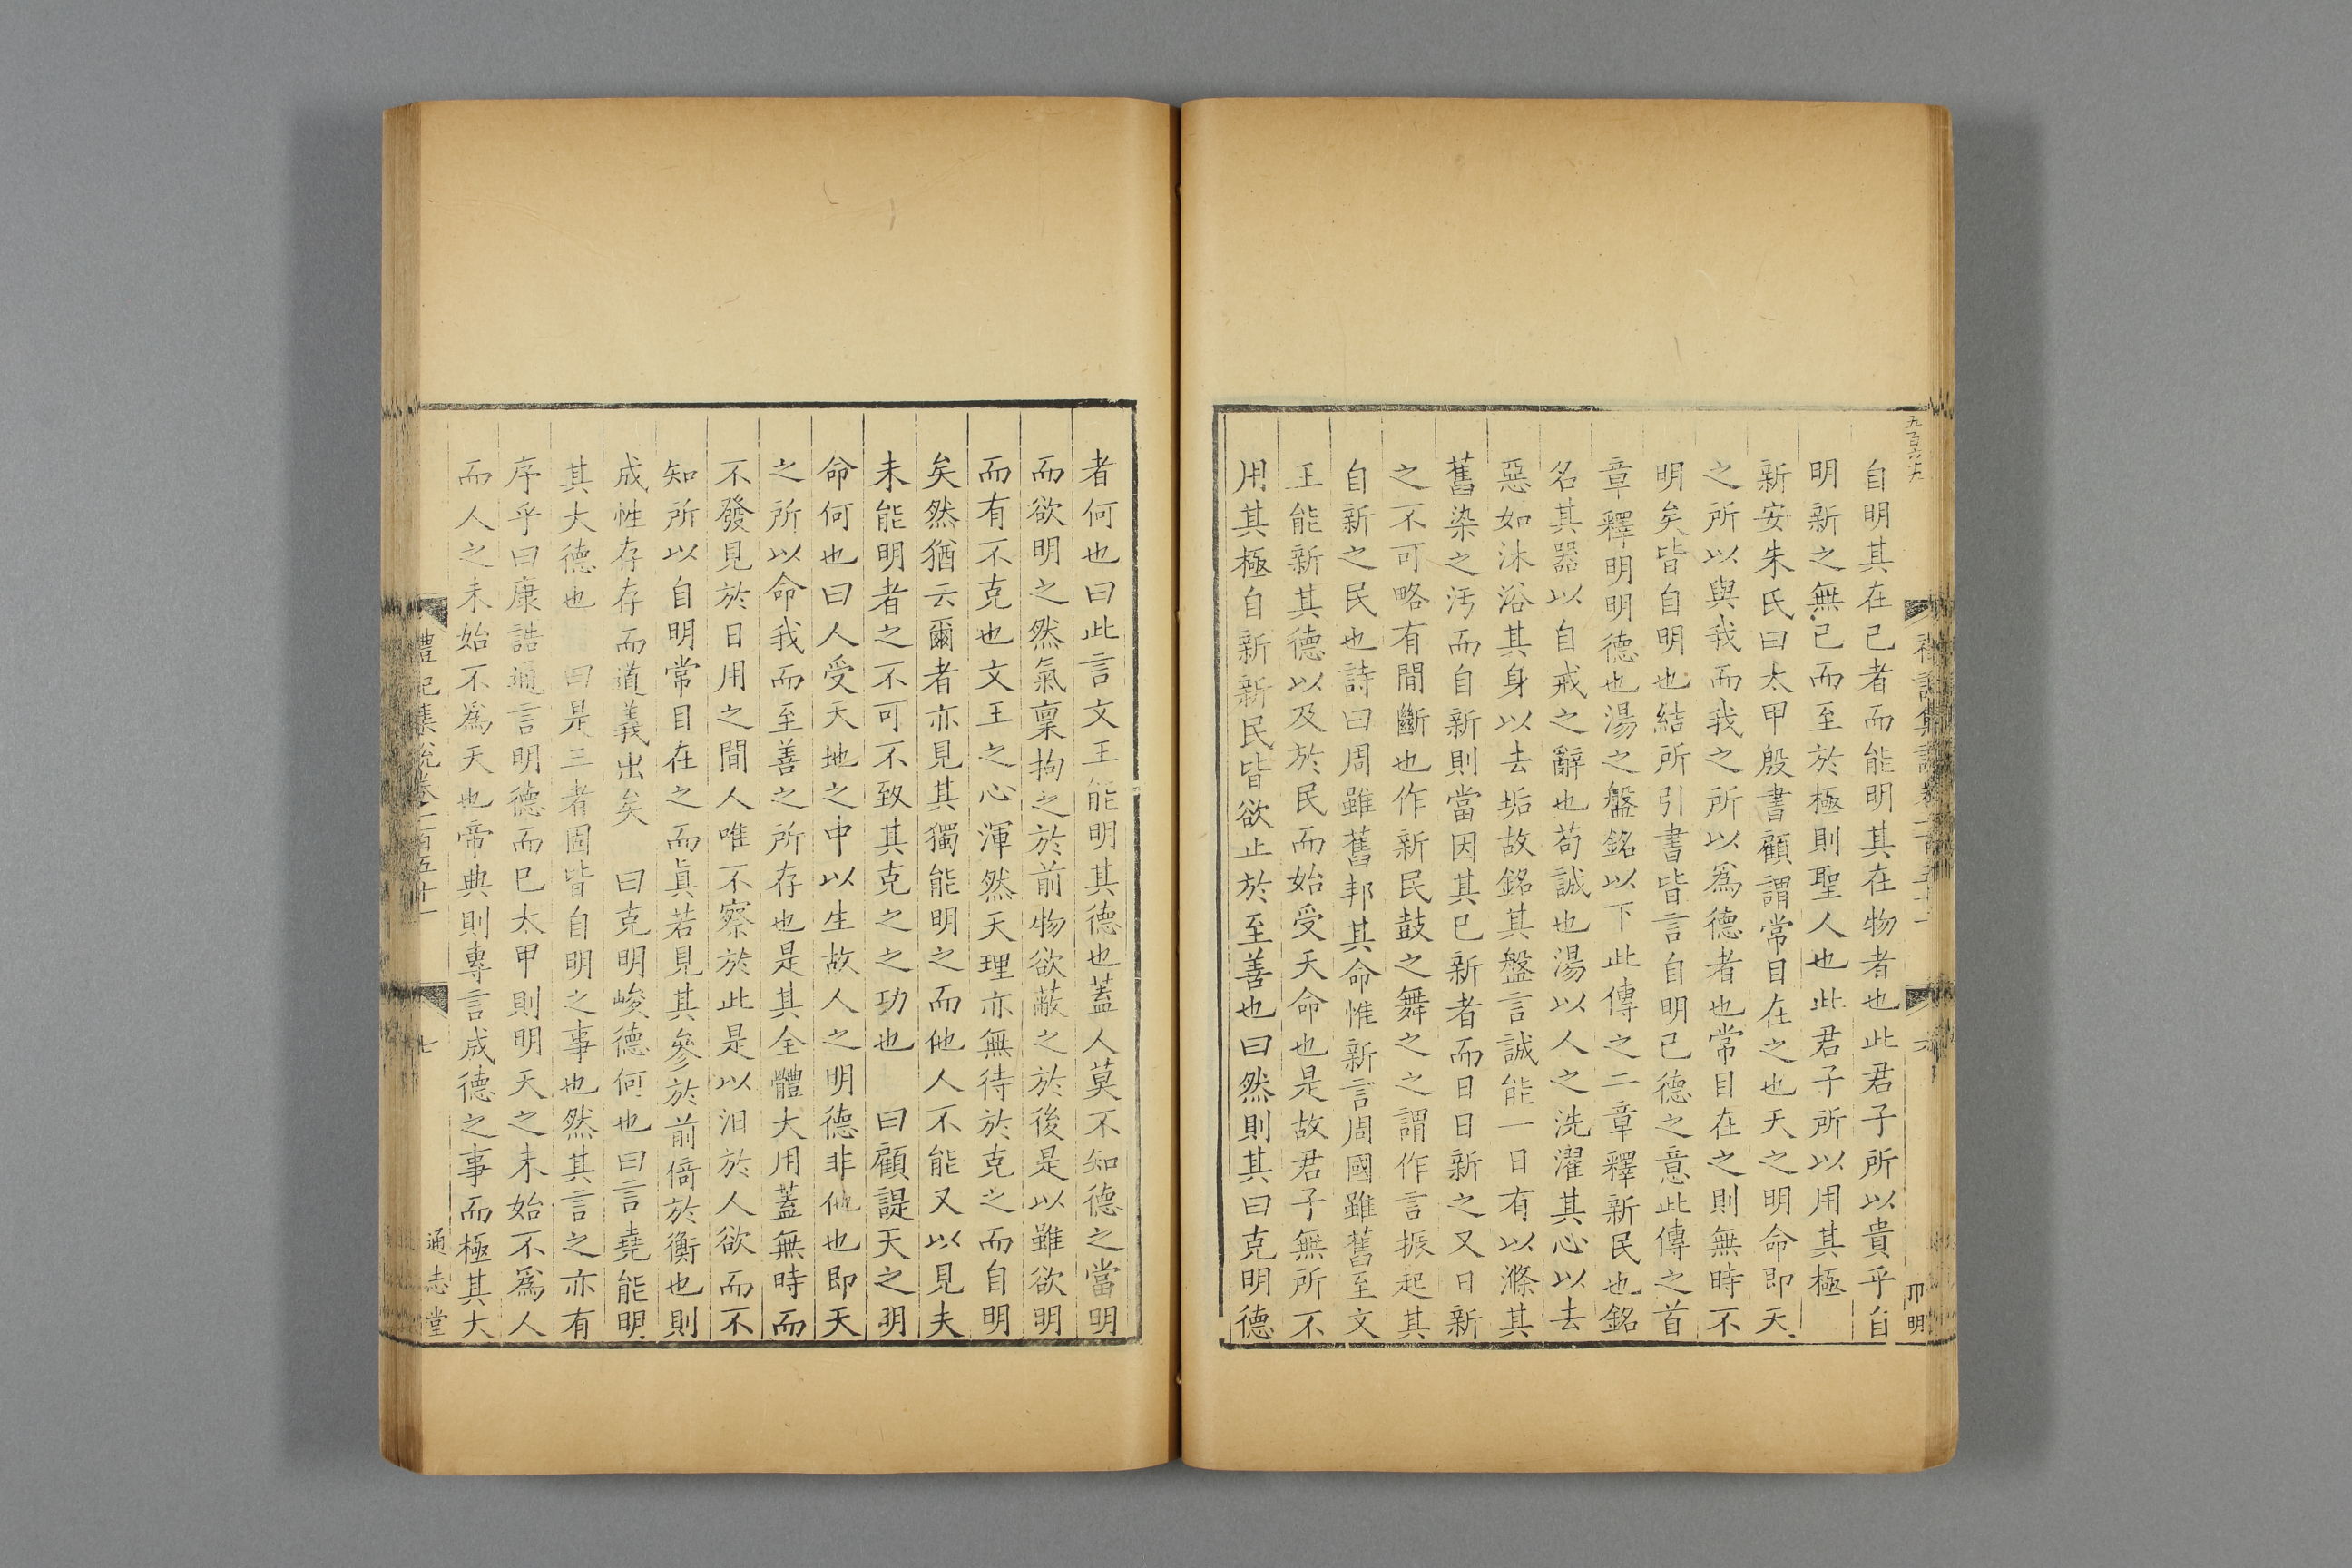 自明其在己者而能明其在物者也此君子所以貴乎自
明新之無已而至於極則聖人也此君子所以用其極
新安朱氏曰太甲殷書顧謂常目在之也天之明命即天
之所以與我而我之所以爲德者也常目在之則無時不
明矣皆自明也結所引書皆言自明已德之意此傳之首
章釋明明德也湯之盤銘以下此傳之二章釋新民也銘
名其器以自戒之辭也苟誠也湯以人之洗濯其心以去
惡如沐浴其身以去垢故銘其盤言誠能一日有以滌其
舊染之汚而自新則當因其已新者而日日新之又日新
之不可略有間斷也作新民鼓之舞之之謂作言振起其
自新之民也詩曰周雖舊邦其命惟新言周國雖舊至文
王能新其德以及於民而始受天命也是故君子無所不
用其極自新新民皆欲止於至善也曰然則其曰克明德
者何也曰此言文王能明其德也蓋人莫不知德之當明
而欲明之然氣稟拘之於前物欲蔽之於後是以雖欲明
而有不克也文王之心渾然天理亦無待於克之而自明
矣然猶云爾者亦見其獨能明之而他人不能又以見夫
未能明者之不可不致其克之之功也 曰顧諟天之明
命何也曰人受天地之中以生故人之明德非他也即天
之所以命我而至善之所存也是其全體大用蓋無時而
不發見於日用之間人唯不察於此是以汩於人欲而不
知所以自明常目在之而眞若見其參於前倚於衡也則
成性存存而道義出矣 曰克明峻德何也曰言堯能明
其大德也 曰是三者固皆自明之事也然其言之亦有
序乎曰康誥通言明德而已太甲則明天之未始不爲人
而人之未始不爲天也帝典則專言成德之事而極其大
禮記集說卷一百五十一
七
通志堂